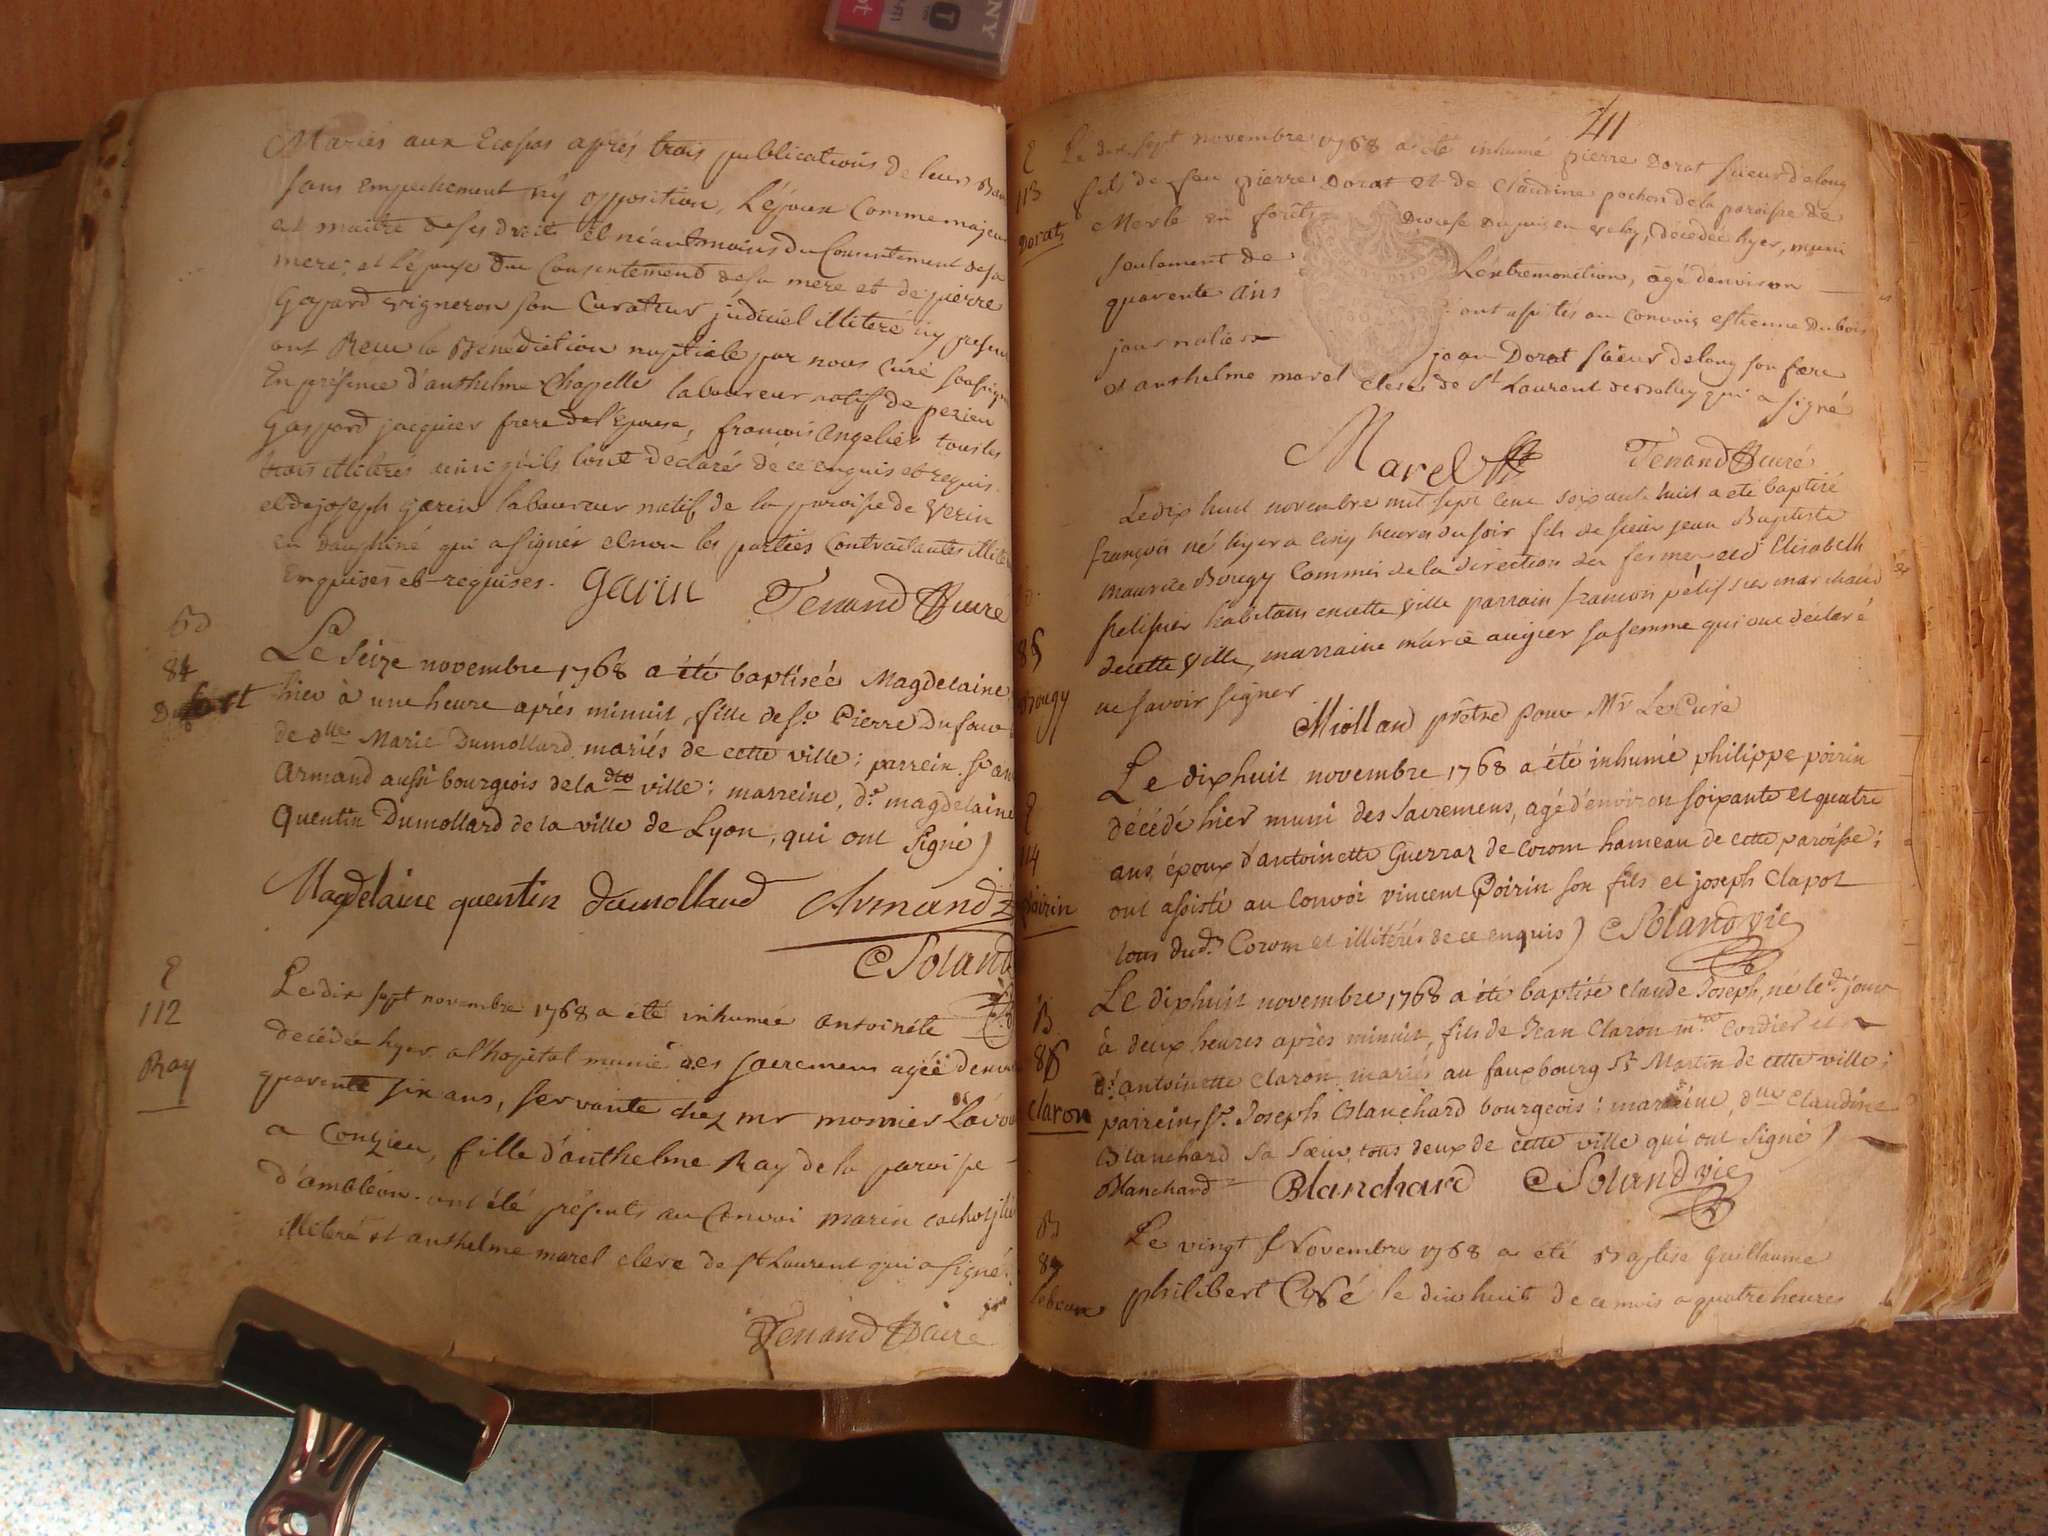 Mariés aux Ecassas aprés trois publications de leurs Bans
sans empechement n'y opposition, L'époux Comme majeur
et maitre de ses droits et néantmoins du Consentement de sa
mere; et l'épouse du Consentement de sa mere et de pierre
Goyard vigneron son Curateur judiciel illiteré icy present
ont Recu la Bénédiction nuptiale par nous Curé soussigné
En présence d'anthelme Chapelle laboureur natif de pezieu
Gaspard jacquier frere de l'épouse, francois angelier tous les
trois illiterés ainsi qu'ils l'ont déclaré de ce enquis et requis
et de joseph garin laboureur natif de la paroisse de Verin
en Dauphiné qui a signé et non les parties Contractantes
Enquises et requises. Garin Tenand Curé
84
Le Seize novembre 1768 a été baptiseé Magdelaine
hier à une heure aprés minuit, fille de Sr. Pierre Dufour
de dlle Marie Dumollard mariés de cette ville; parrein Sr
Armand aussi bourgeois de la dte ville; marreine, De. magdelaine
Quentin Dumollard de la ville de Lyon, qui ont Signé)
Magdelaine quentin dumollard Armand
Soland
E
112
Ray
Le dix sept novembre 1768 a été inhumée antoinéte
decédée hyer a l'hopital munie des sacremens agée d'envi
quarente six ans, servante chez mr monnier
a Conzieu, fille d'anthelme Ray de la paroisse
d'ambléon. ont été présents au Convoi marin
illiteré et anthelme marel clerc de st Laurent qui a signé.
Tenand Curé
41
E
113
Dorat
Le dix sept novembre 1768 a été inhumé pierre Dorat sieur de long
fils de feu pierre Dorat et de Claudine pochon de la paroisse de
Merle en forêts Diocese du puis en velay, décédé hyer, muni
seulement de L'extremonction, agé d'environ
quarente ans ont assistés au Convois estienne Dubois
journalier jean Dorat sieur de long son frere
et anthelme marel clerc de St Laurent qui a signé
Marel Tenand Curé
85
Bougy
Le dix huit novembre mil sept cent soixante huit a eté baptisé
françois né hyer a cinq heures du soir fils de sieur jean Baptiste
maurice Bougy Commis de la direction des fermes et d'Elisabeth
Pelissier habitans en cette ville parrain francois pélissier marchand
de cette ville, marraine marie augier sa femme qui ont déclaré
ne savoir signer
Miolland prêtre pour Mr Le Curé
E
114
Poirin
Le dixhuit novembre 1768 a été inhumé philippe poirin
décédé hier muni des Sacremens, agé d'environ soixante et quatre
ans, époux d'antoinette Guerraz de Corom hameau de cette paroisse;
ont assisté au Convoi vincent Poirin son fils et joseph Clapot
tous dud. Corom et illitérés de ce enquis) Soland vic
B
86
Claron
Le dixhuit novembre 1768 a été baptisé Claude Joseph, né led. jour
à deux heures aprés minuit, fils de Jean Claron me. Cordier et
d'antoinette Claron mariés au fauxbourg St. Martin de cette ville;
parrein, Sr. Joseph Blanchard bourgeois; marreine, dlle Claudine
Blanchard sa Sœur, tous deux de cette ville qui ont signé)
Blanchard Blanchard Soland vic
B
87
Le vingt Novembre 1768 a été Baptisé guillaume
philibert né le dix huit de ce mois a quatre heures